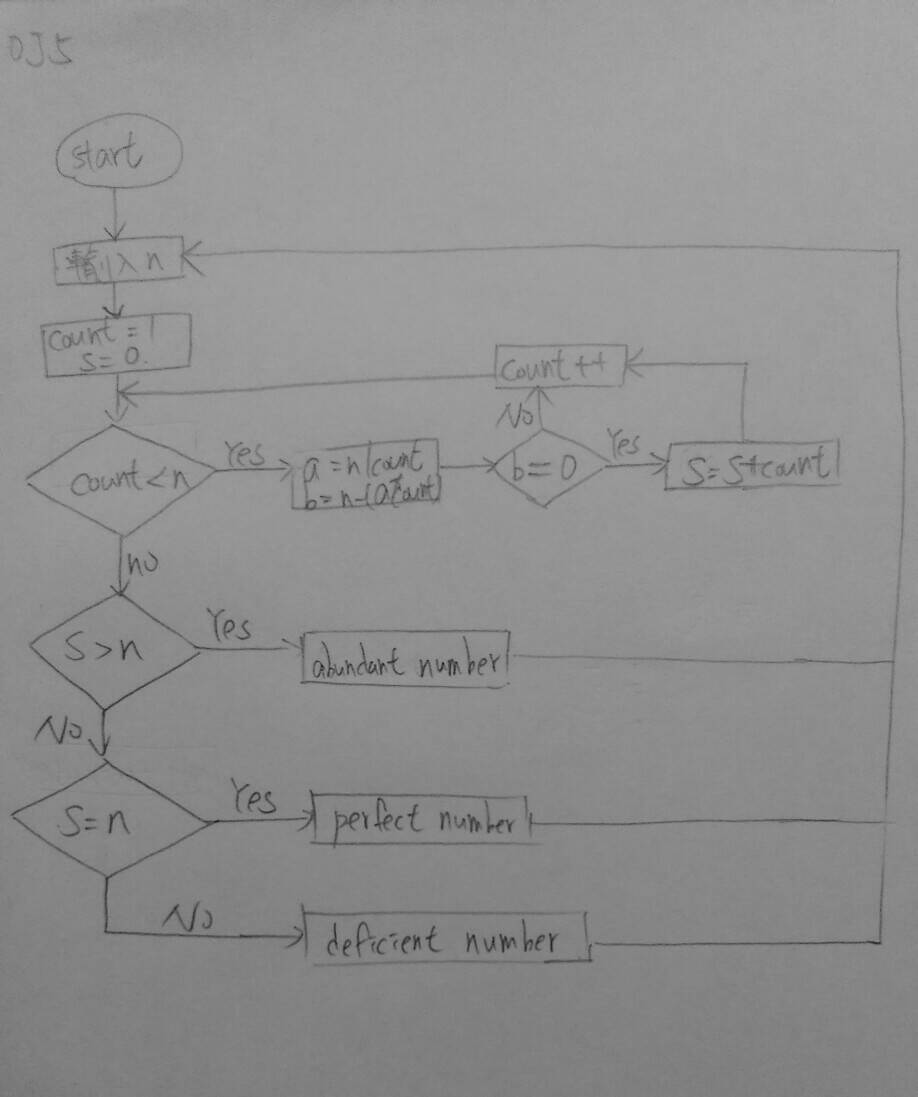 OJ5
start
輸入 n
count = 1
s = 0.
count ++
No
count < n
Yes
a = n/count
b = n-(a*count)
b == 0
Yes
S = S+count
no
S > n
Yes
abundant number
No
S = n
Yes
perfect number
No
deficient number